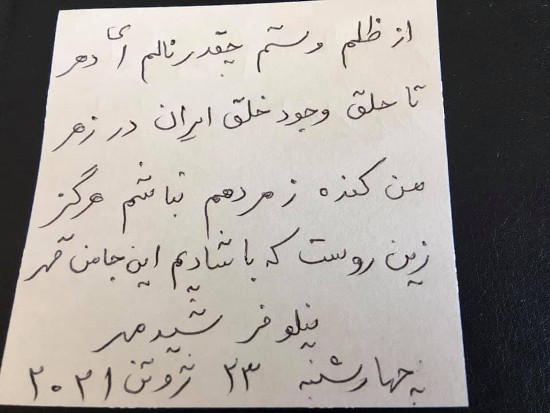 از ظلم و ستم چقدر نالم ای دهر
تا حلق وجود خلق ایران در زهر
من کنده ز مردمم نباشم هرگز
زین روست که با شادیم این جامن قهر
نیلوفر شیدمهر
چهارشنبه ۲۳ ژوئن ۲۰۲۱